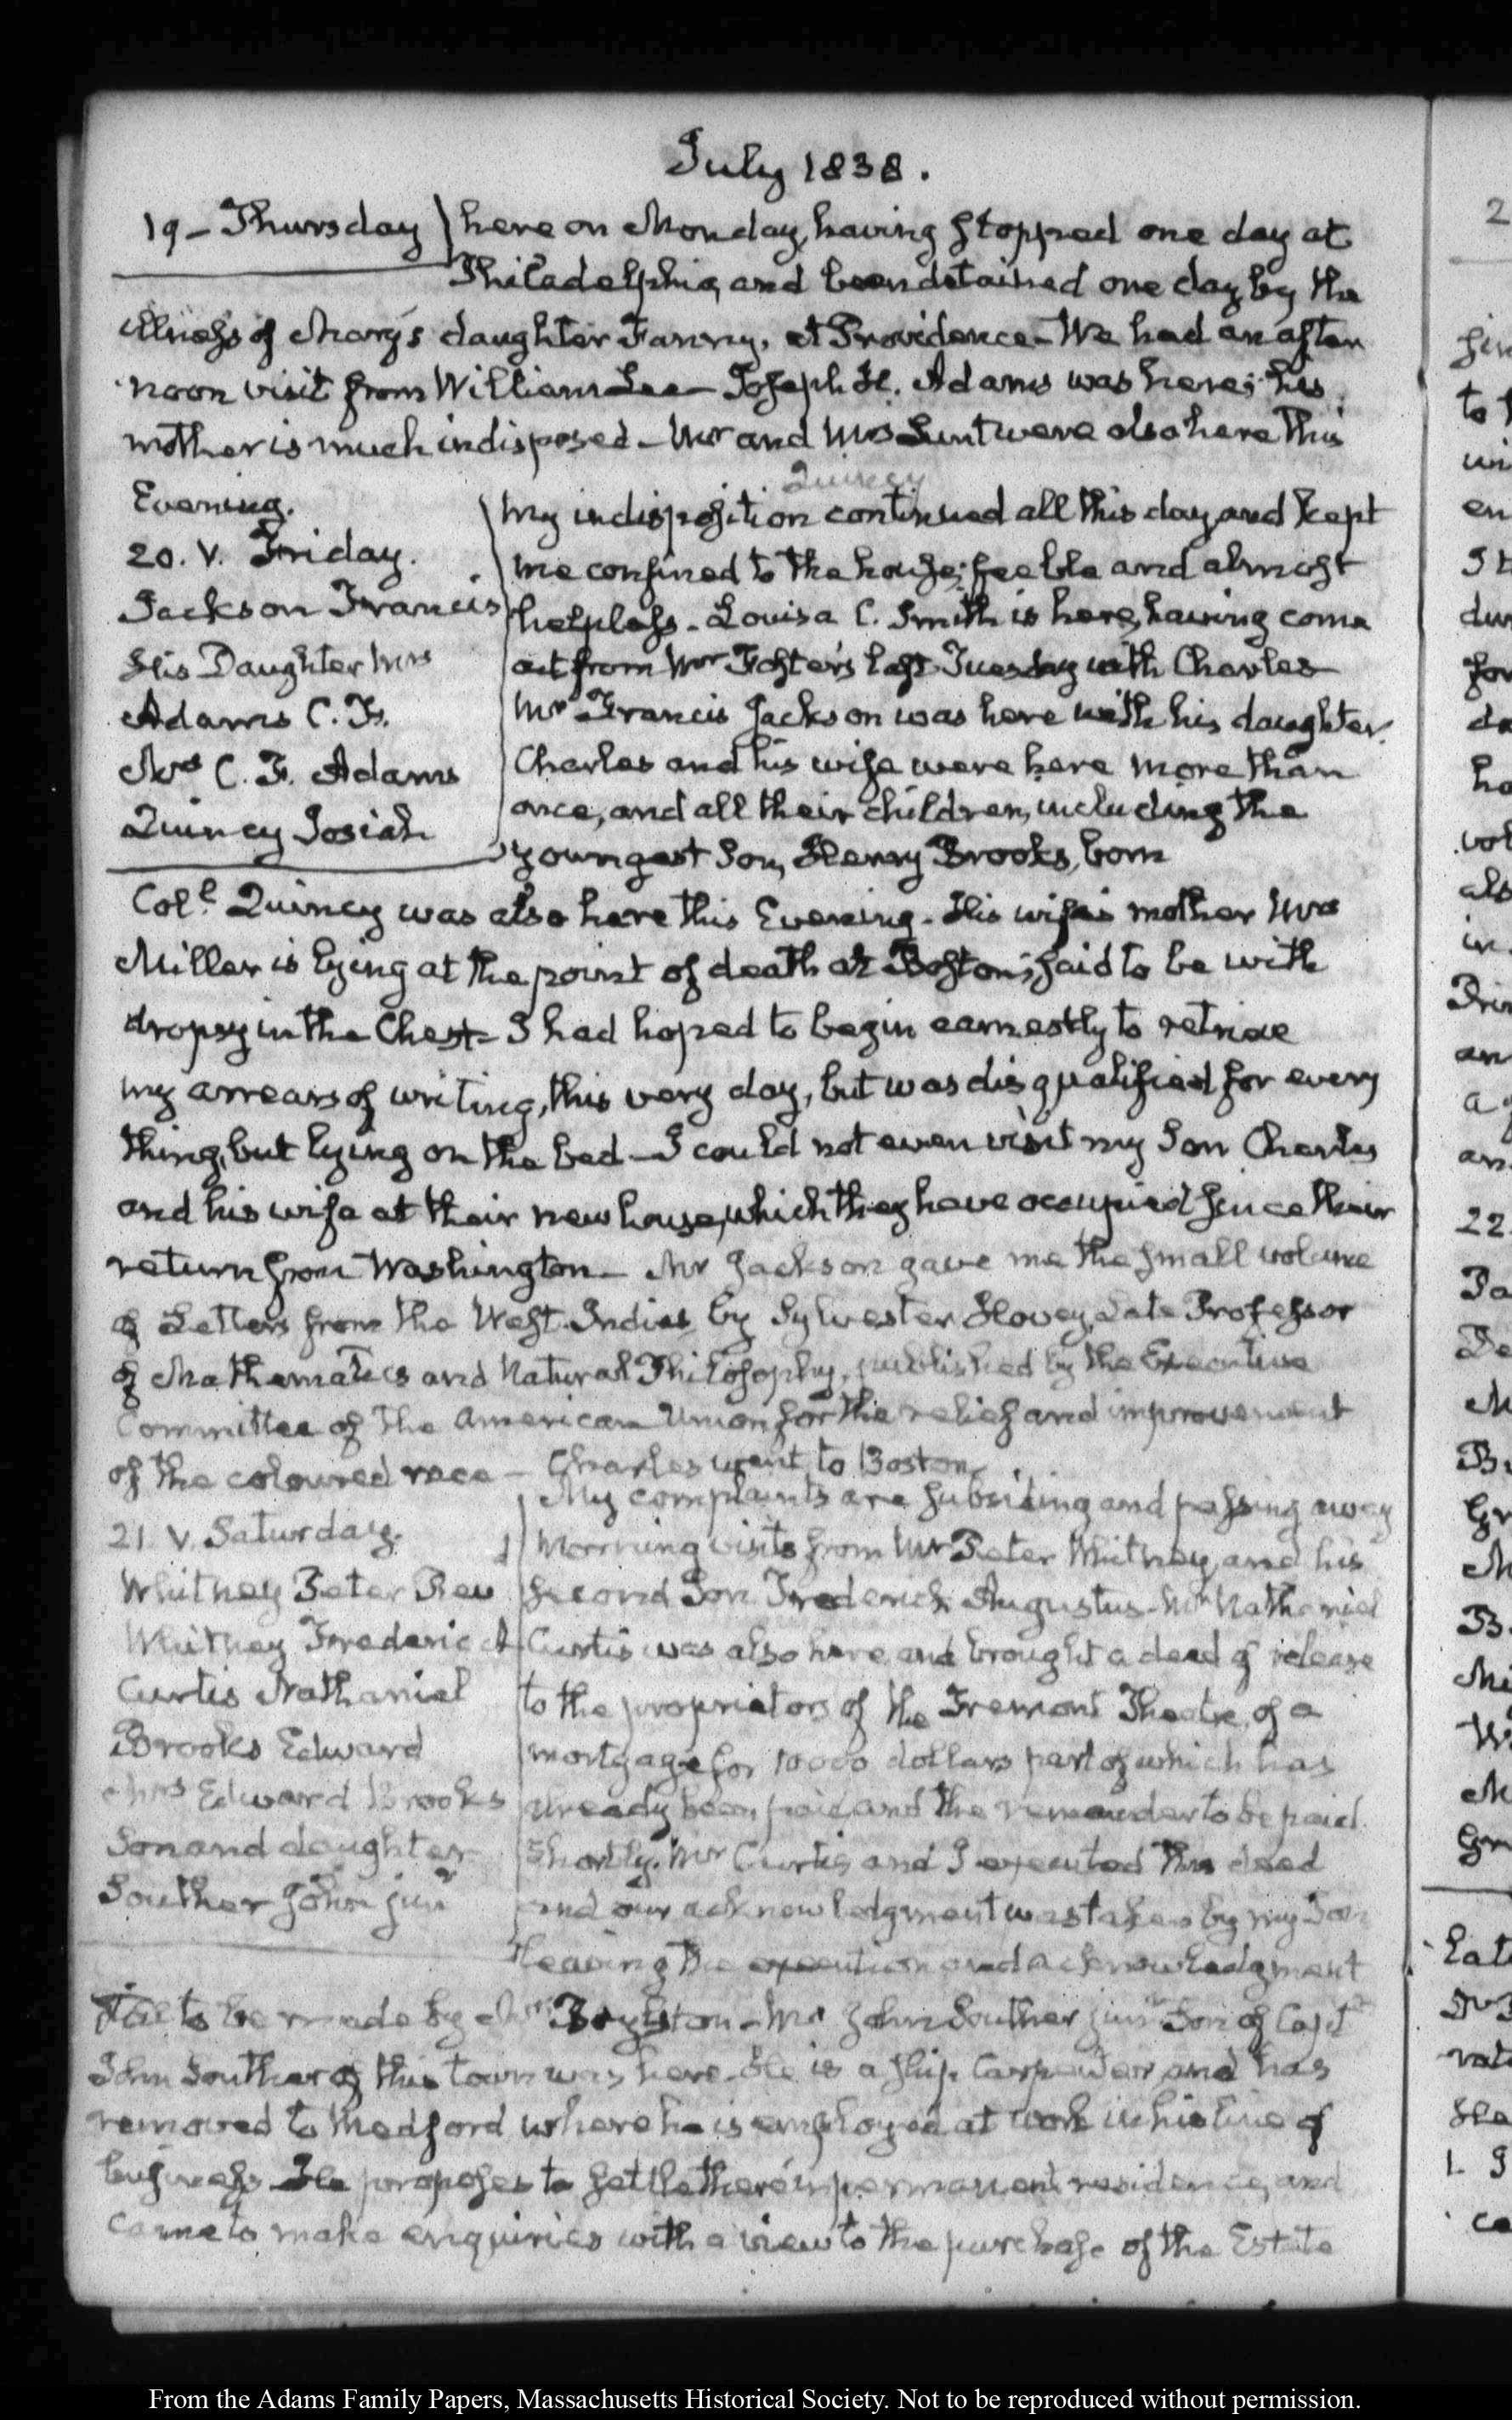 July 1838.
19 - Thursday
here on Monday, having stopped one day at
Philadelphia, and been detained one day by the
illness of Mary's daughter Fanny, at Providence - We had an after
noon visit from William Lee - Joseph H. Adams was here; his
mother is much indisposed - Mr and Mrs Lunt were also here this
Evening.
20. V. Friday.
Jackson Francis
His Daughter Mrs
Adams C. F.
Mrs C. F. Adams
Quincy Josiah
Quincy
My indisposition continued all this day and kept
me confined to the house; feeble and almost
helpless - Louisa C. Smith is here, having come
out from Mr Foster's last Tuesday with Charles
Mr Francis Jackson was here with his daughter.
Charles and his wife were here more than
once, and all their children, including the
youngest Son, Henry Brooks, born
Coll. Quincy was also here this Evening - His wife's mother Mrs
Miller is lying at the point of death at Boston; said to be with
dropsy in the Chest - I had hoped to begin earnestly to retrieve
my arrears of writing, this very day, but was disqualified for every
thing, but lying on the bed - I could not even visit my Son Charles
and his wife at their new house, which they have occupied since their
return from Washington - Mr Jackson gave me the small volume
of Letters from the West-Indies, by Sylvester Hovey, Late Professor
of Mathematics and Natural Philosophy, published by the Executive
Committee of the American Union for the relief and improvement
of the coloured race - Charles went to Boston.
21. V. Saturday.
Whitney Peter Rev
Whitney Frederic A
Curtis Nathaniel
Brooks Edward
Mrs Edward Brooks
Son and daughter
Souther John junr
My complaints are subsiding and passing away
Morning visits from Mr Peter Whitney, and his
second Son Frederick Augustus - Mr Nathaniel
Curtis was also here and brought a deed of release
to the proprietors of the Tremont Theatre, of a
mortgage for 10000 dollars part of which has
already been paid and the remainder to be paid
shortly. Mr Curtis and I executed this deed
and our acknowledgment was taken by my Son
leaving the execution and acknowledgment
to be made by Boylston - Mr John Souther junr Son of Capt
John Souther of this town was here. He is a ship Carpenter, and has
removed to Medford where he is employed at work in his line of
business. He proposes to settle there in permanent residence, and
came to make enquiries with a view to the purchase of the Estate
From the Adams Family Papers, Massachusetts Historical Society. Not to be reproduced without permission.